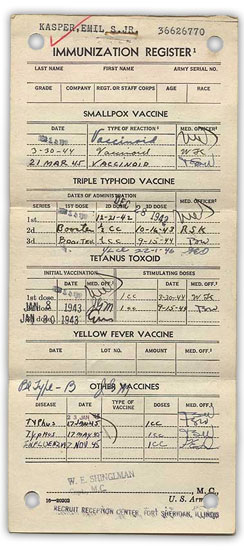 KASPER, EMIL S. JR. 36626770
IMMUNIZATION REGISTER¹
LAST NAME FIRST NAME ARMY SERIAL NO.
GRADE COMPANY REGT. OR STAFF CORPS AGE RACE
SMALLPOX VACCINE
DATE TYPE OF REACTION² MED. OFFICER³
Vaccinoid
3-30-44 Vaccinoid
21 MAR 45 VACCINOID
TRIPLE TYPHOID VACCINE
DATES OF ADMINISTRATION
SERIES 1ST DOSE 2D DOSE 3D DOSE MED. OFFICER³
1st 12-21-42 1942
2d Booster ½ CC 10-16-43 RSK
3d Booster ½ CC 9-15-44
½cc 22-1-46
TETANUS TOXOID
INITIAL VACCINATION STIMULATING DOSES
DATE MED. OFF.³ DATE MED. OFF.³
1st dose 1cc 3-30-44
JAN 8 1943 1cc 9-15-44
JAN 30 1943
YELLOW FEVER VACCINE
DATE LOT NO. AMOUNT MED. OFF.³
Bl Type - B OTHER VACCINES
DISEASE DATE TYPE OF VACCINE DOSES MED. OFF.³
23 JAN
TYPHUS 17 JAN 45 1CC
TYPHUS 17 MAY 45 1CC
INFLUENZA 7 NOV 45 1CC
W. E. SHINGLMAN
M.C.
, M. C.
16-20202 U. S. Army
RECRUIT RECEPTION CENTER, FORT SHERIDAN, ILLINOIS